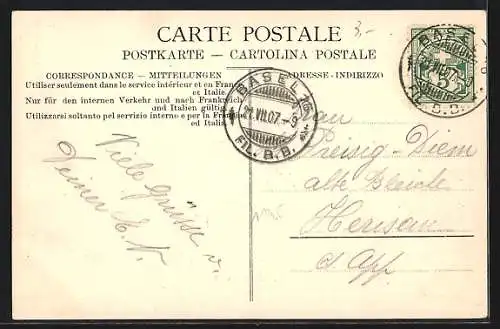 CARTE POSTALE
3,-
POSTKARTE — CARTOLINA POSTALE
CORRESPONDANCE - MITTEILUNGEN
ADRESSE-INDIRIZZO
Utiliser seulement dans le service intérieur et en France
et Italie.
Nur für den internen Verkehr und nach Frankreich
und Italien gültig.
Utilizzarsi soltanto pel servizio interno e per la Francia
ed Italia.
BASEL
VII.07.-9
FIL. B.B.
BASEL
VII.07.
FIL. B.B.
Viele Grüsse v.
Deiner E. V.
Frau
Preisig-Diem
alte Bleiche
Herisau
Ct. App.